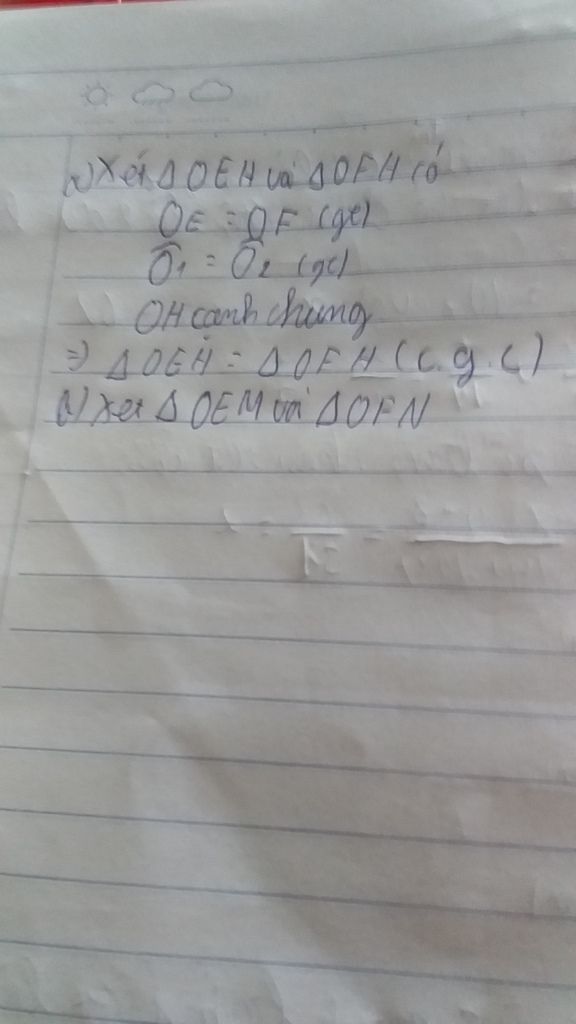 a) Xét Δ OEH và Δ OFH có
OE = OF (gt)
Ô1 = Ô2 (gt)
OH cạnh chung
=> Δ OEH = Δ OFH (c.g.c)
b) Xét Δ OEM và Δ OFN